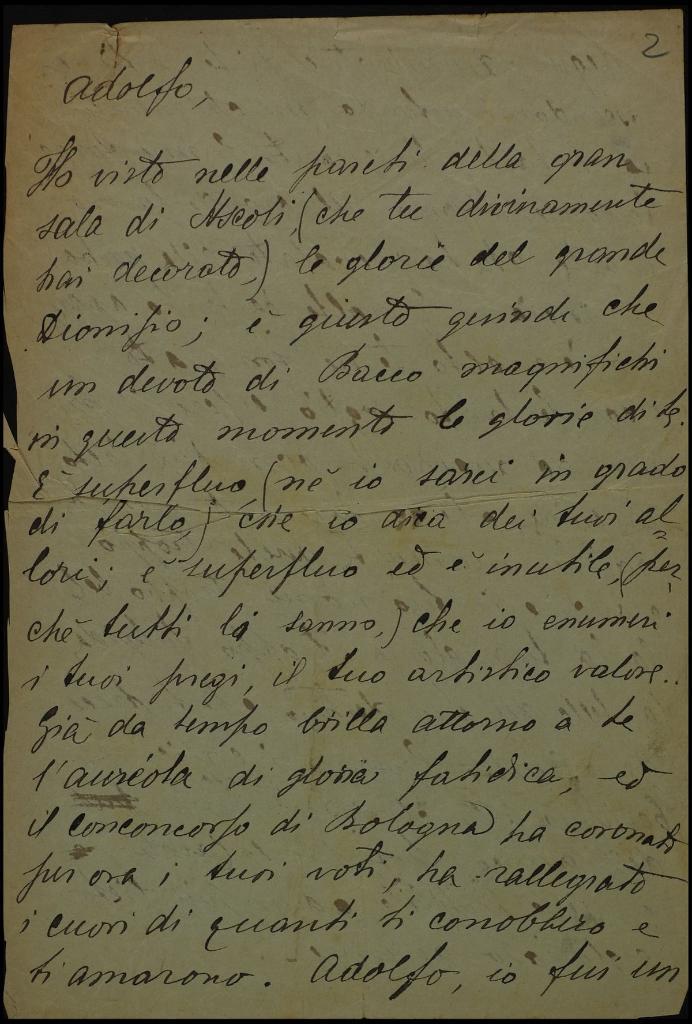 2
Adolfo,
Ho visto nelle pareti della gran
sala di Ascoli, (che tu divinamente
hai decorato,) le glorie del grande
Dionisio; è giusto quindi che
un devoto di Bacco magnifichi
in questo momento le glorie di te.
È superfluo, (nè io sarei in grado
di farlo,) che io dica dei tuoi al=
lori; è superfluo ed è inutile, (per=
chè tutti li sanno,) che io enumeri
i tuoi pregi, il tuo artistico valore..
Già da tempo brilla attorno a te
l'aureola di gloria fatidica, ed
il conconcorso di Bologna ha coronato
per ora i tuoi voti, ha rallegrato
i cuori di quanti ti conobbero e
ti amarono. Adolfo, io fui un